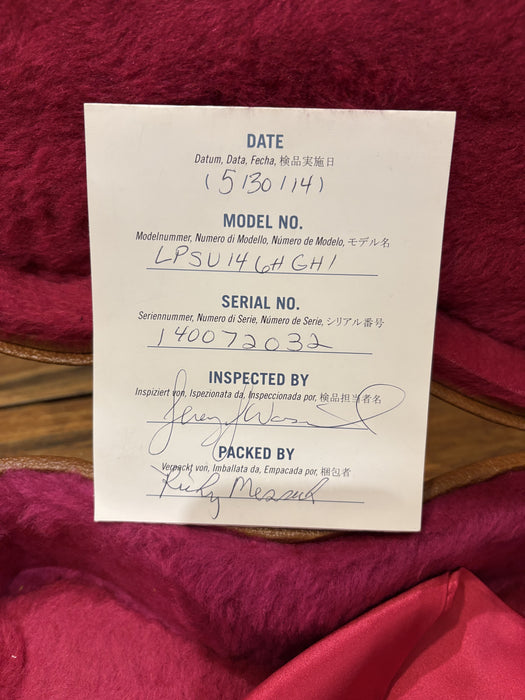 DATE
Datum, Data, Fecha, 検品実施日
(5/30/14)
MODEL NO.
Modelnummer, Numero di Modello, Número de Modelo, モデル名
LPSU146HGH1
SERIAL NO.
Seriennummer, Numero di Serie, Número de Serie, シリアル番号
140072032
INSPECTED BY
Inspiziert von, Ispezionata da, Inspeccionada por, 検品担当者名
PACKED BY
Verpackt von, Imballata da, Empacada por, 梱包者
Ricky